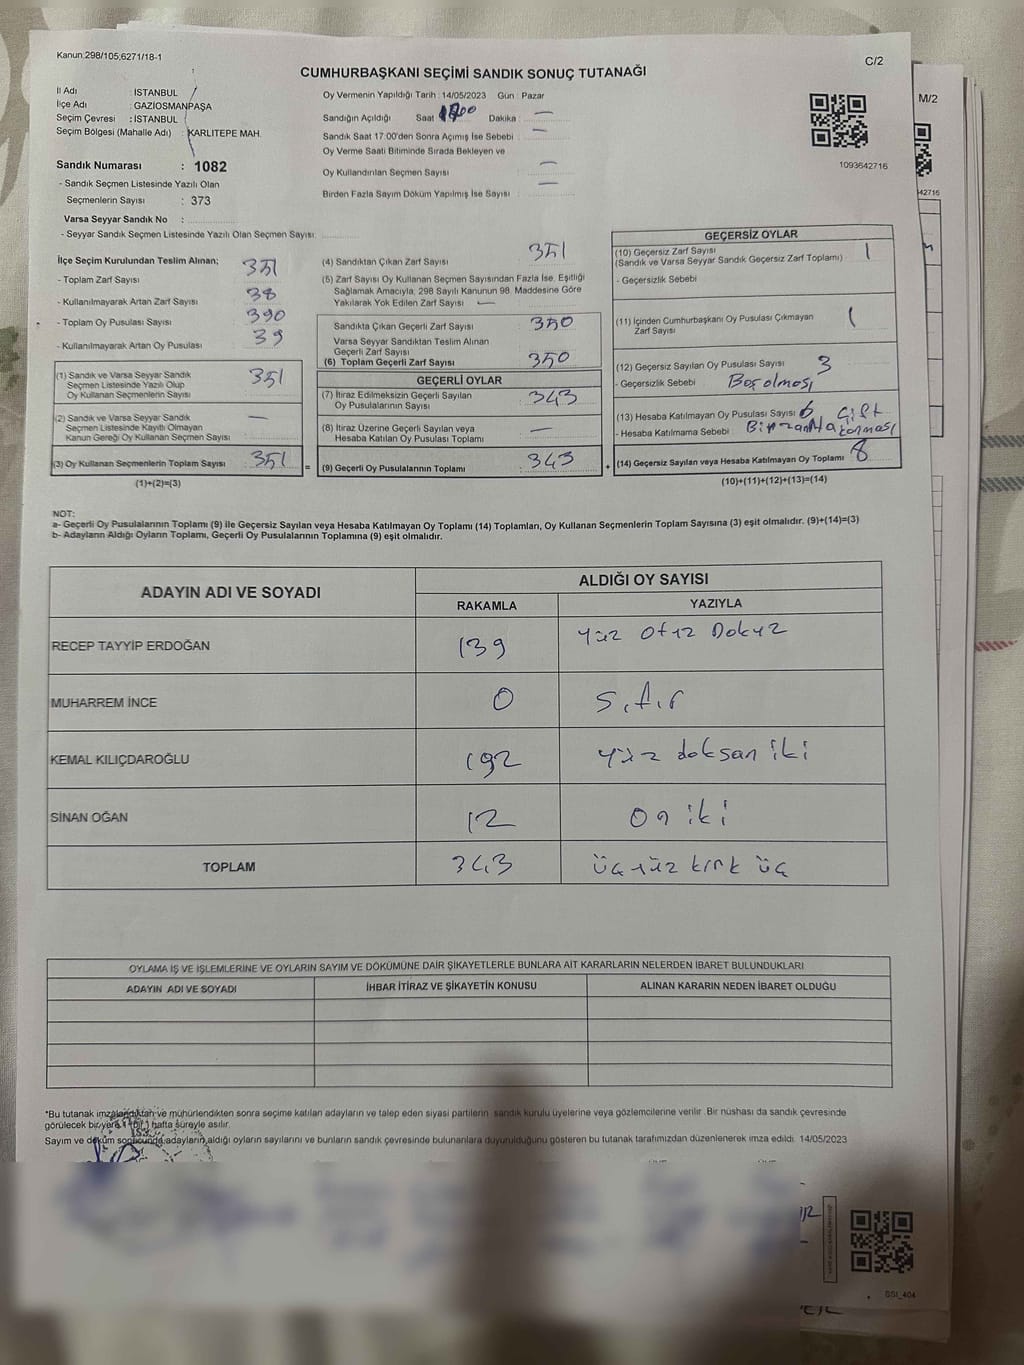 Kanun:298/105;6271/18-1
C/2
CUMHURBAŞKANI SEÇİMİ SANDIK SONUÇ TUTANAĞI
M/2
İl Adı : İSTANBUL
İlçe Adı : GAZİOSMANPAŞA
Seçim Çevresi : İSTANBUL
Seçim Bölgesi (Mahalle Adı) : KARLITEPE MAH.
Sandık Numarası : 1082
- Sandık Seçmen Listesinde Yazılı Olan
Seçmenlerin Sayısı : 373
Varsa Seyyar Sandık No :
- Seyyar Sandık Seçmen Listesinde Yazılı Olan Seçmen Sayısı:
Oy Vermenin Yapıldığı Tarih : 14/05/2023 Gün : Pazar
Sandığın Açıldığı Saat Dakika : —
Sandık Saat 17:00'den Sonra Açımış İse Sebebi : —
Oy Verme Saati Bitiminde Sırada Bekleyen ve
Oy Kullandırılan Seçmen Sayısı : —
Birden Fazla Sayım Döküm Yapılmış İse Sayısı : —
1093642716
42716
İlçe Seçim Kurulundan Teslim Alınan;
- Toplam Zarf Sayısı : 351
- Kullanılmayarak Artan Zarf Sayısı : 38
- Toplam Oy Pusulası Sayısı : 390
- Kullanılmayarak Artan Oy Pusulası : 39
(1) Sandık ve Varsa Seyyar Sandık
Seçmen Listesinde Yazılı Olup
Oy Kullanan Seçmenlerin Sayısı : 351
(2) Sandık ve Varsa Seyyar Sandık
Seçmen Listesinde Kayıtlı Olmayan
Kanun Gereği Oy Kullanan Seçmen Sayısı : —
(3) Oy Kullanan Seçmenlerin Toplam Sayısı : 351
(1)+(2)=(3)
=
(4) Sandıktan Çıkan Zarf Sayısı : 351
(5) Zarf Sayısı Oy Kullanan Seçmen Sayısından Fazla İse, Eşitliği
Sağlamak Amacıyla, 298 Sayılı Kanunun 98. Maddesine Göre
Yakılarak Yok Edilen Zarf Sayısı : —
Sandıkta Çıkan Geçerli Zarf Sayısı : 350
Varsa Seyyar Sandıktan Teslim Alınan
Geçerli Zarf Sayısı :
(6) Toplam Geçerli Zarf Sayısı : 350
GEÇERLİ OYLAR
(7) İtiraz Edilmeksizin Geçerli Sayılan
Oy Pusulalarının Sayısı : 343
(8) İtiraz Üzerine Geçerli Sayılan veya
Hesaba Katılan Oy Pusulası Toplamı : —
(9) Geçerli Oy Pusulalarının Toplamı : 343
+
GEÇERSİZ OYLAR
(10) Geçersiz Zarf Sayısı : 1
(Sandık ve Varsa Seyyar Sandık Geçersiz Zarf Toplamı)
- Geçersizlik Sebebi :
(11) İçinden Cumhurbaşkanı Oy Pusulası Çıkmayan
Zarf Sayısı : 1
(12) Geçersiz Sayılan Oy Pusulası Sayısı : 3
- Geçersizlik Sebebi : Boş olması
(13) Hesaba Katılmayan Oy Pusulası Sayısı : 6 Çift
- Hesaba Katılmama Sebebi : Bir zarfta
(14) Geçersiz Sayılan veya Hesaba Katılmayan Oy Toplamı : 8
(10)+(11)+(12)+(13)=(14)
NOT:
a- Geçerli Oy Pusulalarının Toplamı (9) ile Geçersiz Sayılan veya Hesaba Katılmayan Oy Toplamı (14) Toplamları, Oy Kullanan Seçmenlerin Toplam Sayısına (3) eşit olmalıdır. (9)+(14)=(3)
b- Adayların Aldığı Oyların Toplamı, Geçerli Oy Pusulalarının Toplamına (9) eşit olmalıdır.
ADAYIN ADI VE SOYADI
ALDIĞI OY SAYISI
RAKAMLA YAZIYLA
RECEP TAYYİP ERDOĞAN 139 yüz Otuz Dokuz
MUHARREM İNCE 0 sıfır
KEMAL KILIÇDAROĞLU 192 yüz doksan iki
SİNAN OĞAN 12 on iki
TOPLAM 343 üçyüz kırk üç
OYLAMA İŞ VE İŞLEMLERİNE VE OYLARIN SAYIM VE DÖKÜMÜNE DAİR ŞİKAYETLERLE BUNLARA AİT KARARLARIN NELERDEN İBARET BULUNDUKLARI
ADAYIN ADI VE SOYADI İHBAR İTİRAZ VE ŞİKAYETİN KONUSU ALINAN KARARIN NEDEN İBARET OLDUĞU
*Bu tutanak imzalandıktan ve mühürlendikten sonra seçime katılan adayların ve talep eden siyasi partilerin sandık kurulu üyelerine veya gözlemcilerine verilir. Bir nüshası da sandık çevresinde
görülecek bir yere 1 (bir) hafta süreyle asılır.
Sayım ve döküm sonucunda,adayların,aldığı oyların sayılarını ve bunların sandık çevresinde bulunanlara duyurulduğunu gösteren bu tutanak tarafımızdan düzenlenerek imza edildi. 14/05/2023
SSI_404